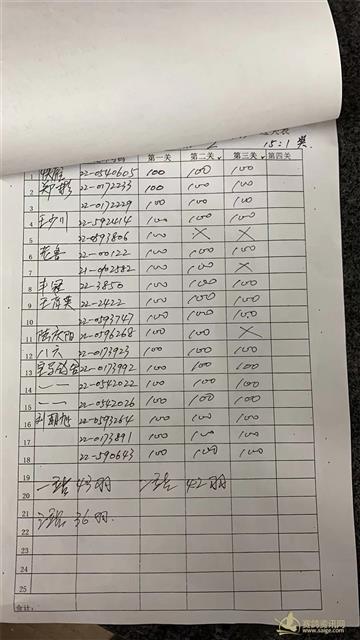 15:1 奖
第一关 第二关 第三关 第四关
1 22-0540605 100 100 100
2 郑彬 22-0172233 100 100 100
3 22-0172229 100 100 100
4 王少川 22-592414 100 100 100
5 22-0593806 100 × ×
6 22-00122 100 100 100
7 21-0402582 100 100 ×
8 丰冠 22-3850 100 100 100
9 22-2422 100 100 100
10 22-0593747 100 100 100
11 陈庆阳 22-0596268 100 100 ×
12 八六 22-0173923 100 100 100
13 22-0173992 100 100 100
14 一一 22-0542022 100 100 100
15 一一 22-0542026 100 100 100
16 22-0593264 100 100 100
17 22-0173891 100 100 100
18 22-590643 100 100 100
19
20 43羽 42羽
21 36羽
22
23
24
25
合计:
赛鸽资讯网
www.saige.com